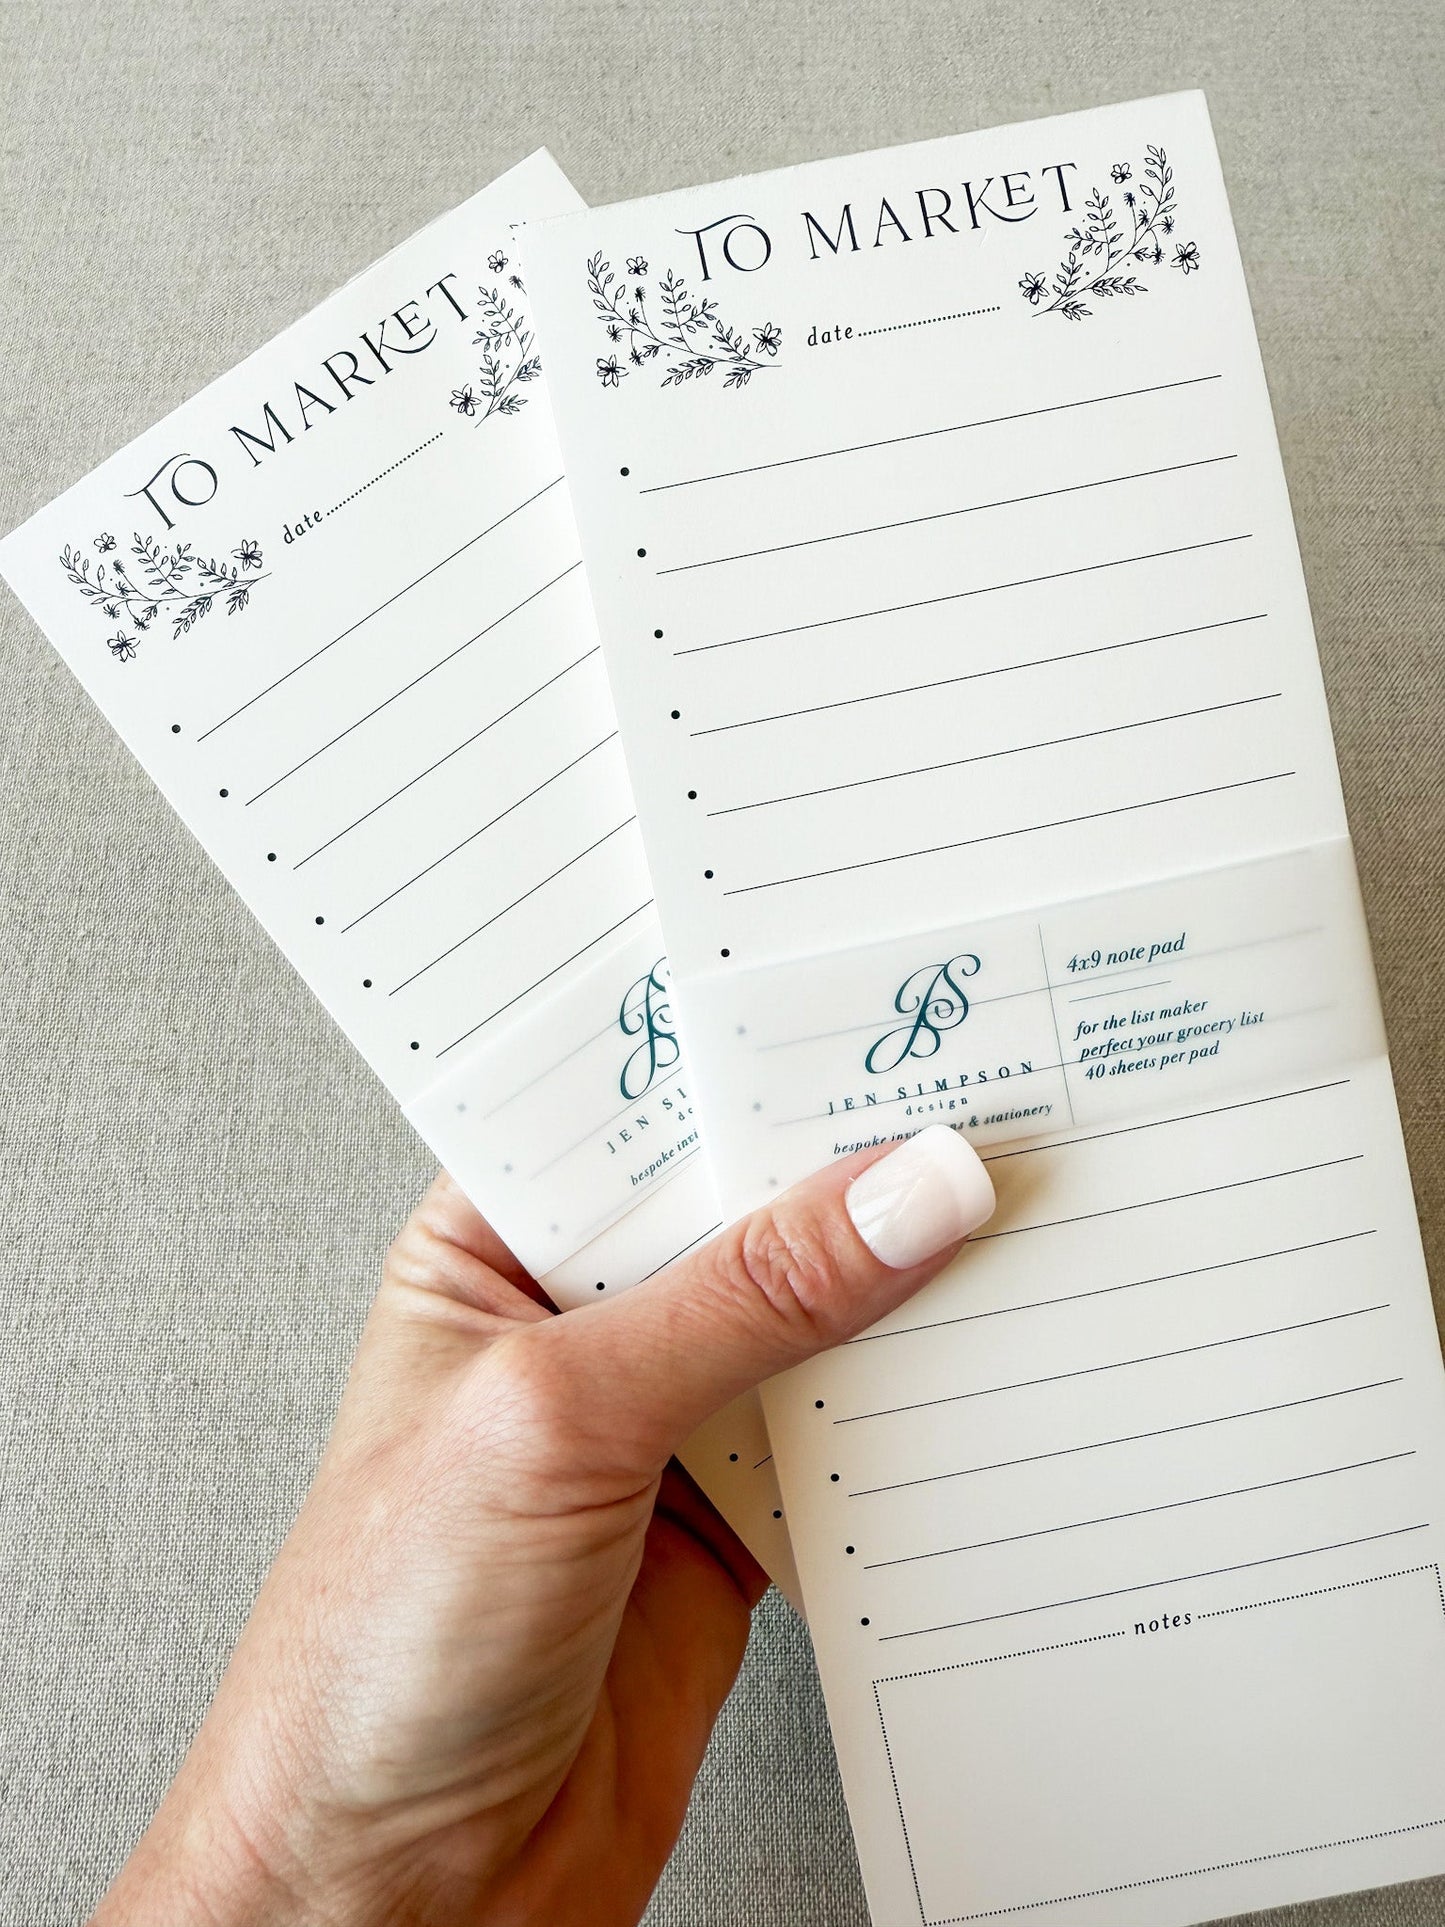 TO MARKET
date
JEN
de
bespoke
TO MARKET
date
JS
JEN SIMPSON
design
bespoke & stationery
4x9 note pad
for the list maker
perfect your grocery list
40 sheets per pad
notes